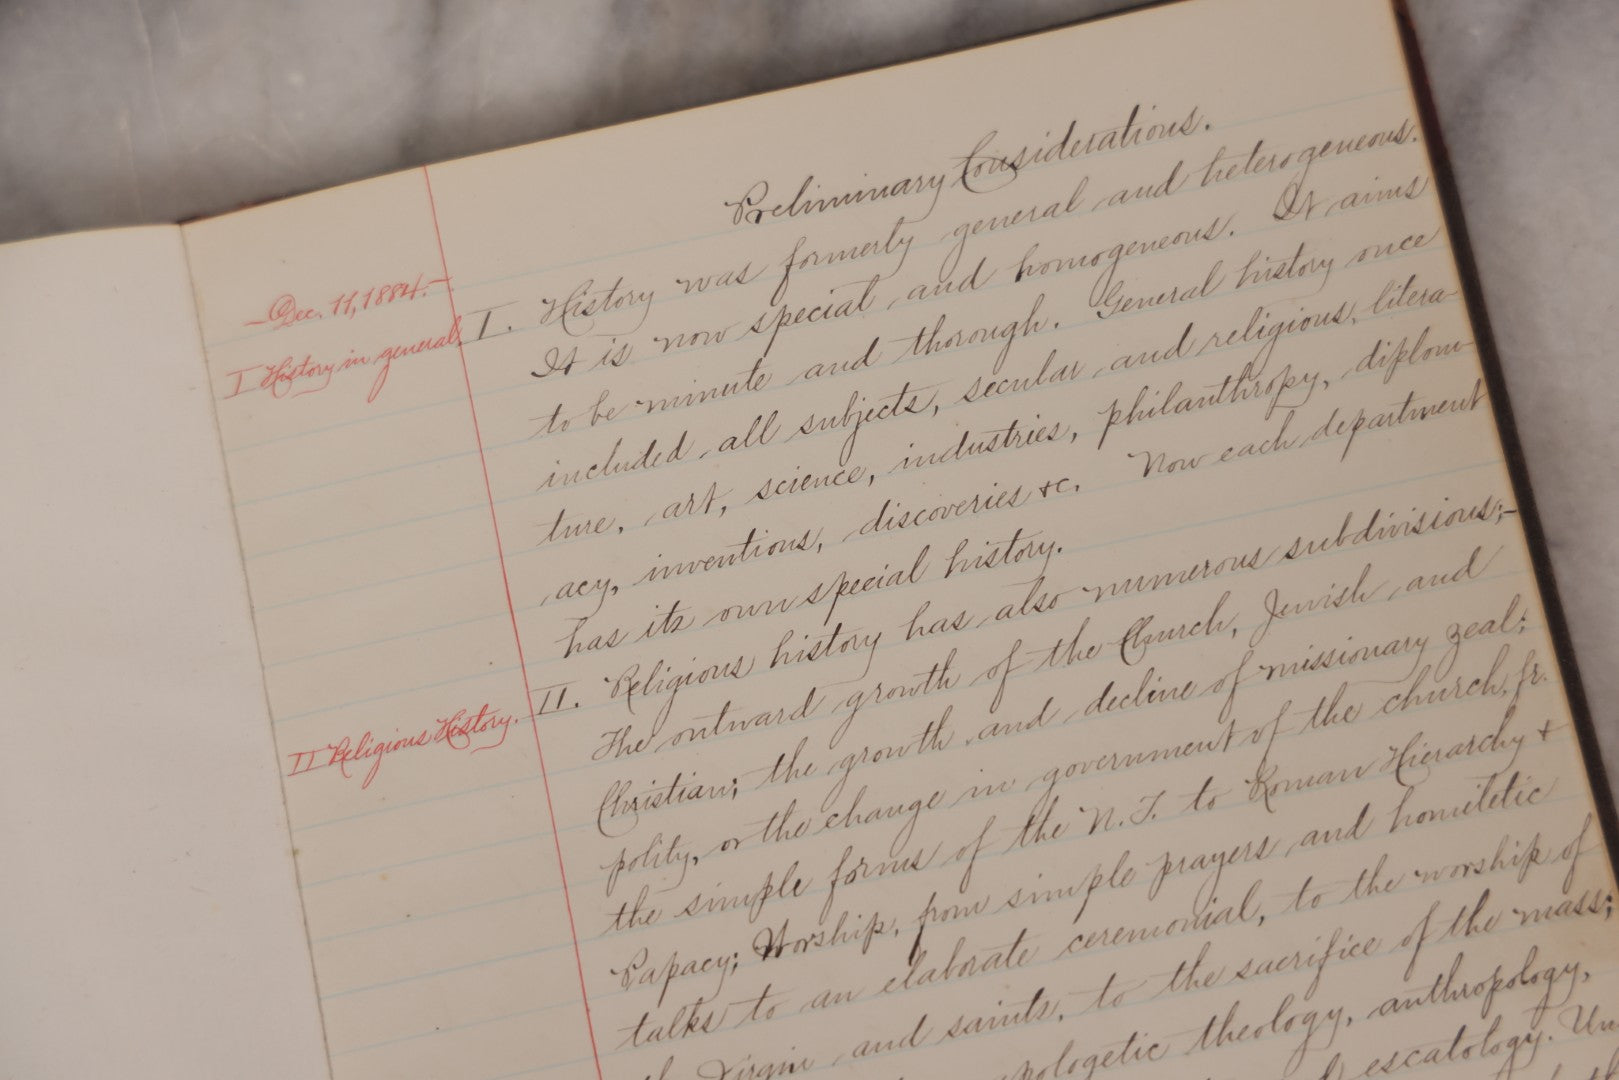 Preliminary Considerations.
—Dec. 11, 1884.—
I History in general.
I. History was formerly general and heterogeneous.
It is now special and homogeneous. It aims
to be minute and thorough. General history once
included all subjects, secular and religious, litera-
ture, art, science, industries, philanthropy, diplom-
acy, inventions, discoveries &c. Now each department
has its own special history.
II Religious History.
II. Religious history has also numerous subdivisions;—
The outward growth of the Church, Jewish and
Christian; the growth and decline of missionary zeal;
polity, or the change in government of the church, fr.
the simple forms of the N.T. to Roman Hierarchy &
Papacy; Worship, from simple prayers and homiletic
talks to an elaborate ceremonial, to the worship of
Virgin and saints, to the sacrifice of the mass;
apologetic theology, anthropology,
escatology. Un